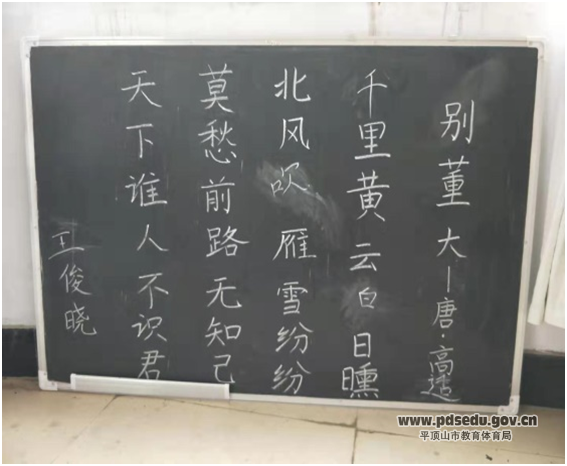 别董大—唐·高适
千里黄云白日曛
北风吹雁雪纷纷
莫愁前路无知己
天下谁人不识君
王俊晓
www.pdsedu.gov.cn
平顶山市教育体育局